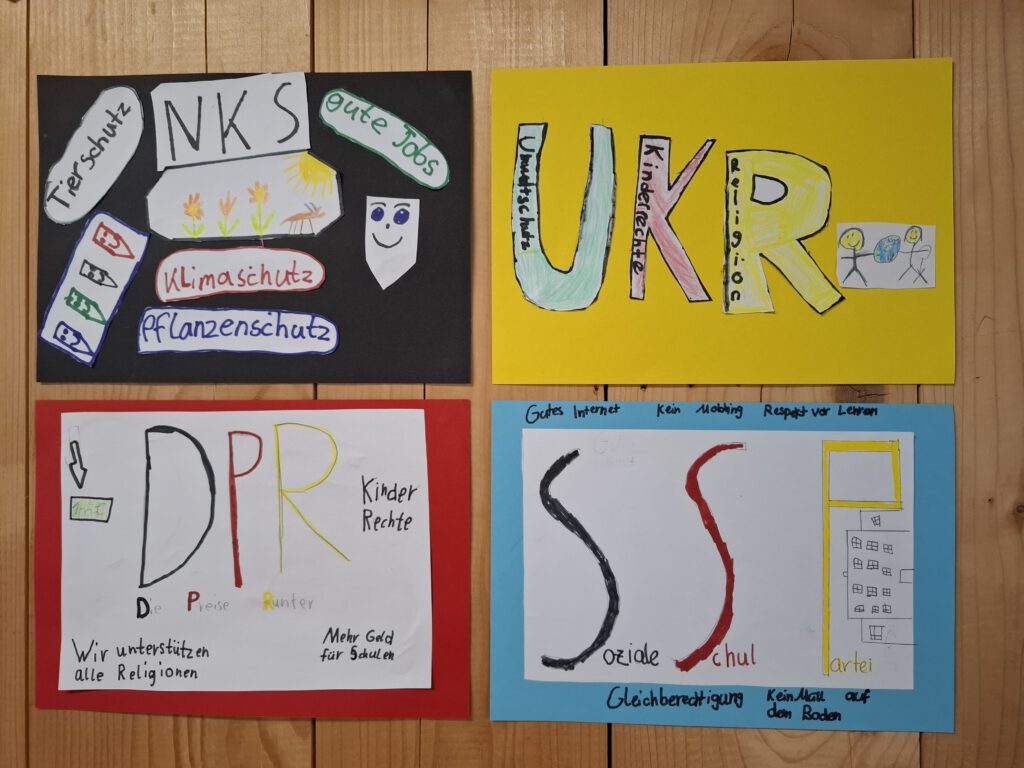 NKS
Tierschutz
gute Jobs
Klimaschutz
Pflanzenschutz
UKR
Umweltschutz
Kinderrechte
Religion
DPR
Kinder
Rechte
Die Preise Runter
Wir unterstützen
alle Religionen
Mehr Geld
für Schulen
Gutes Internet Kein Mobbing Respekt vor Lehrern
Soziale Schul Partei
Gleichberechtigung Kein Müll auf
den Boden